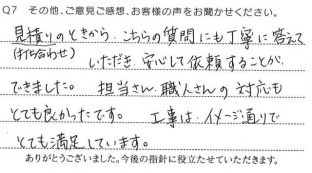 Q7 その他、ご意見ご感想、お客様の声をお聞かせください。
見積りのときから、こちらの質問にも丁寧に答えて
(打ち合わせ)
いただき、安心して依頼することが
できました。 担当さん、職人さんの対応も
とても良かったです。 工事は、イメージ通りで
とても満足しています。
ありがとうございました。今後の指針に役立たせていただきます。